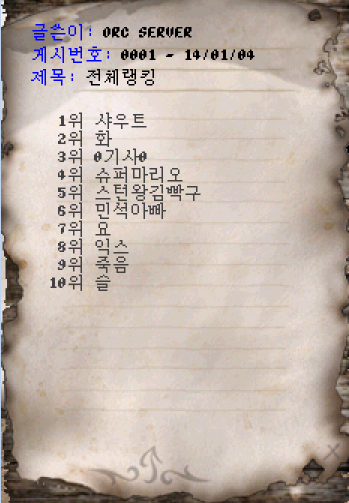 글쓴이: ORC SERVER
게시번호: 0001 - 14/01/04
제목: 전체랭킹
1위 샤우트
2위 화
3위 0기사0
4위 슈퍼마리오
5위 스턴왕김빡구
6위 민석아빠
7위 요
8위 익스
9위 죽음
10위 슬